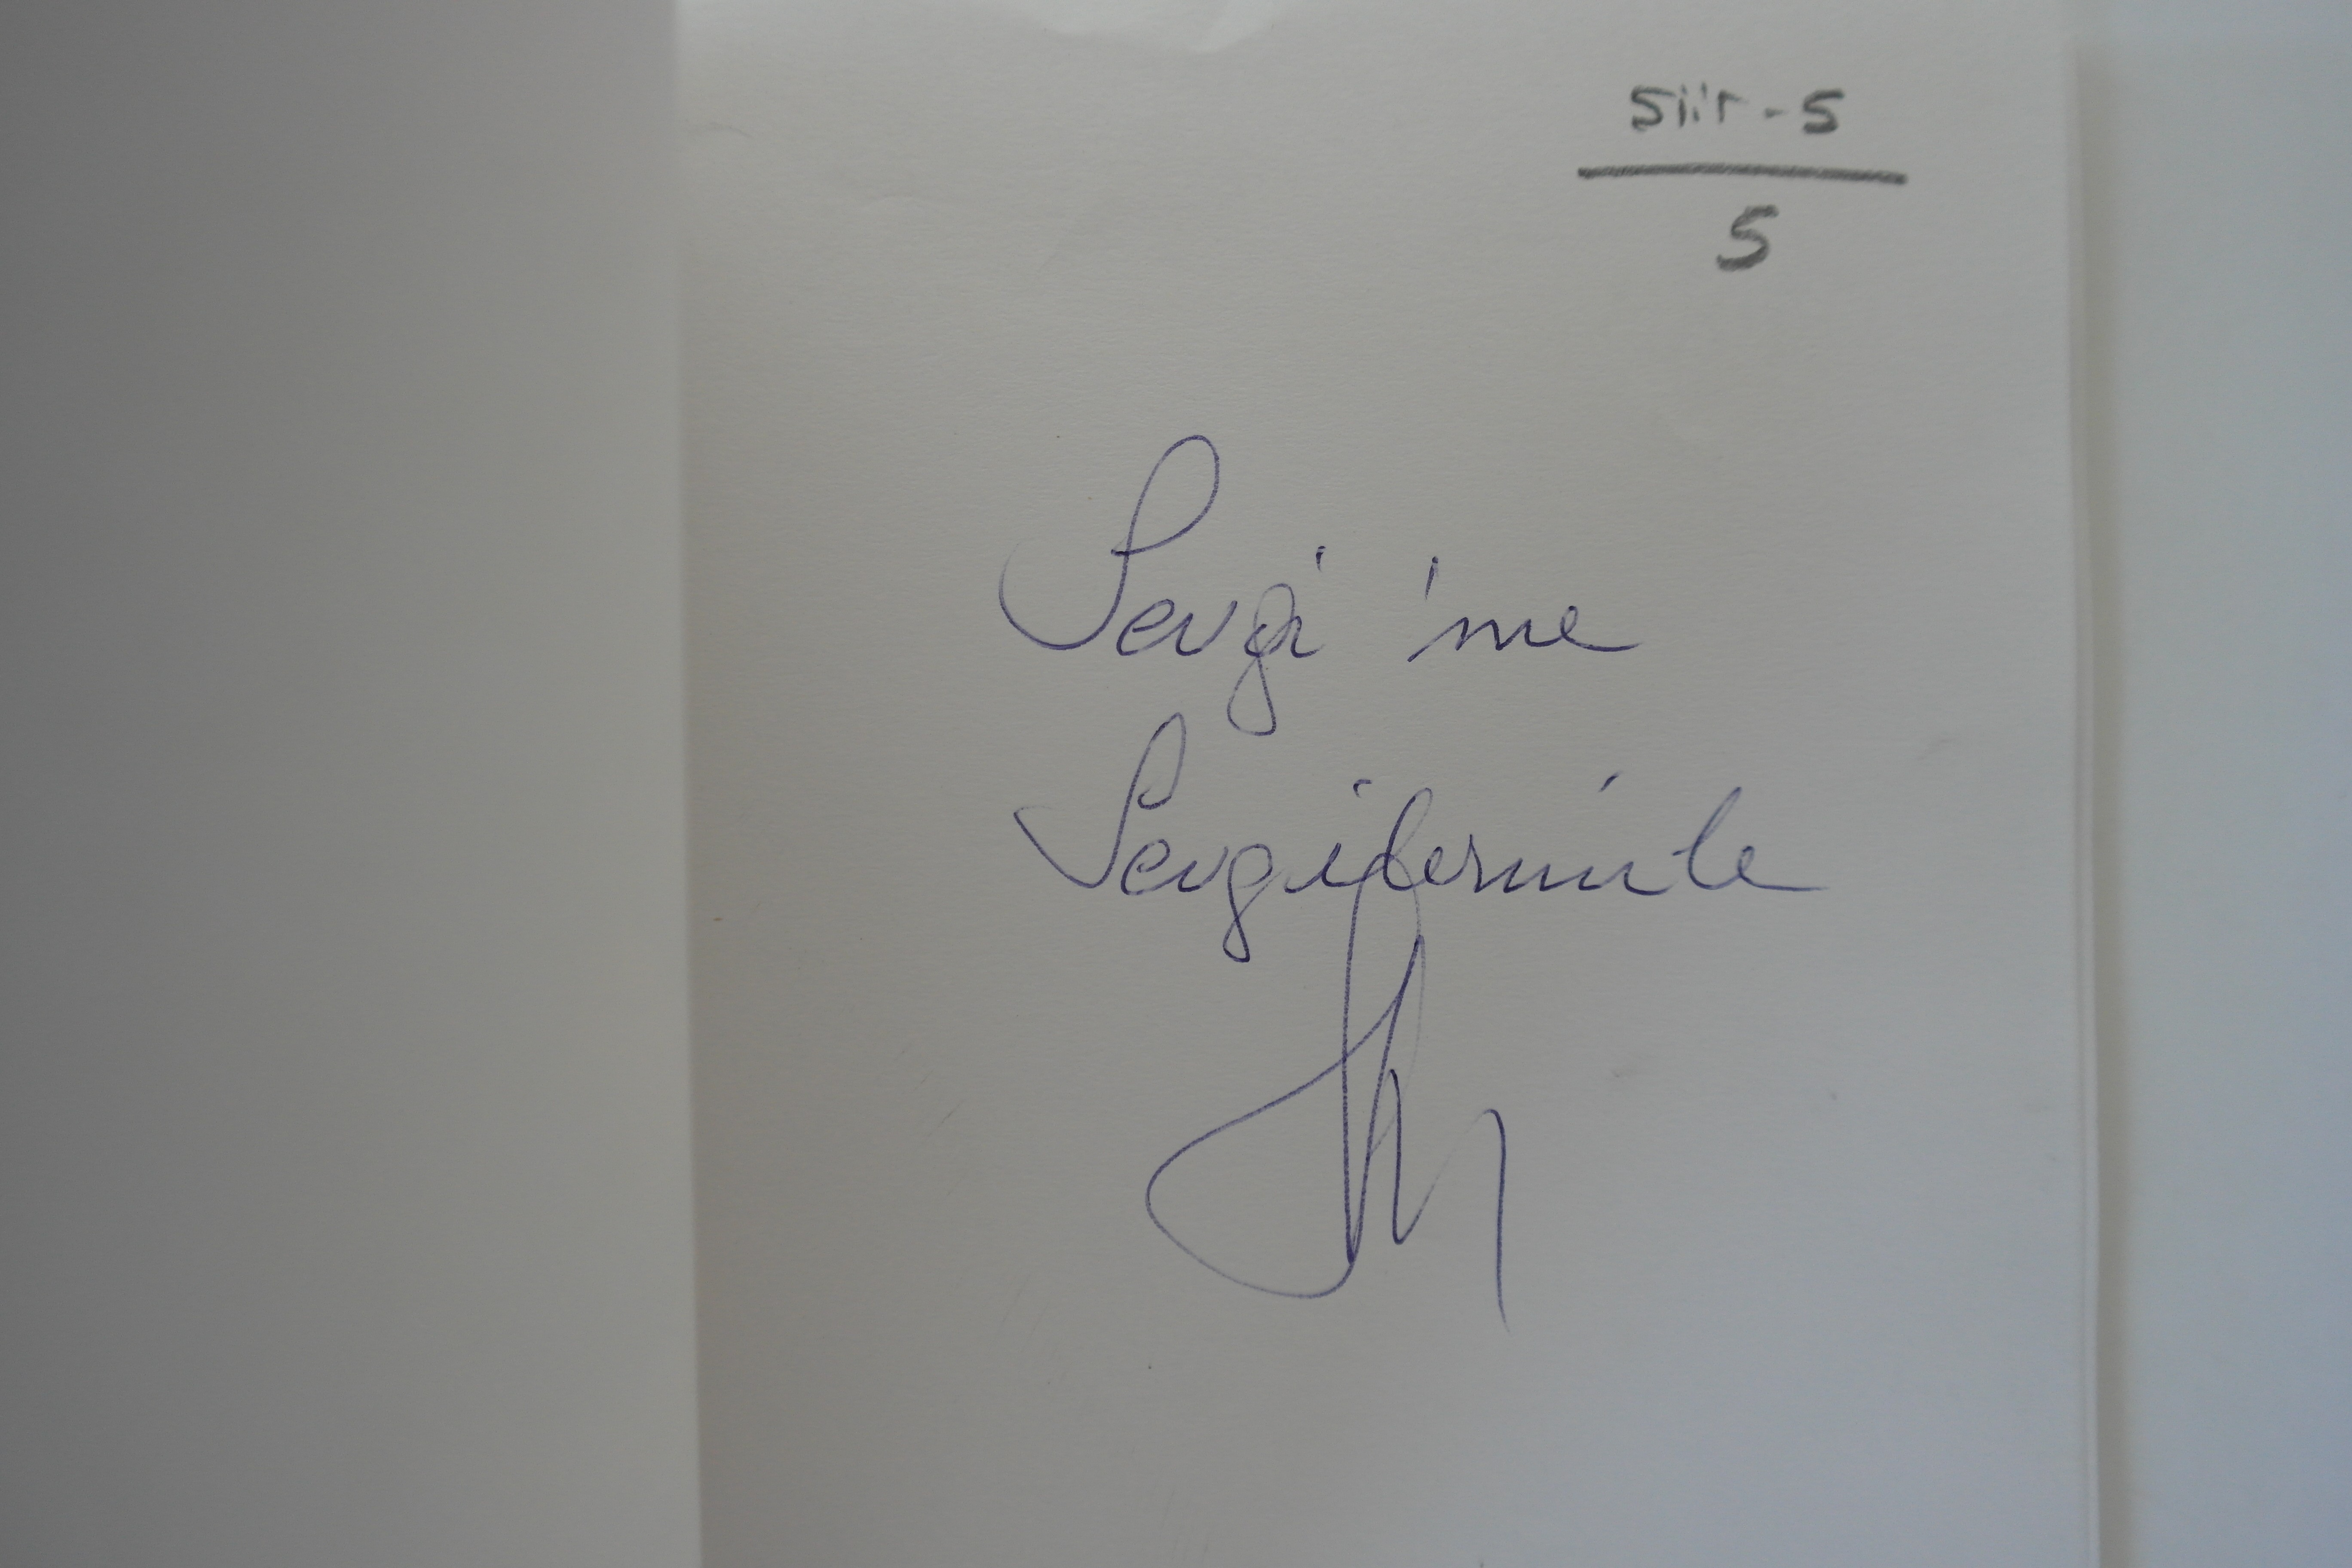 Şiir - 5
5
Sevgi'me
Sevgilerimle